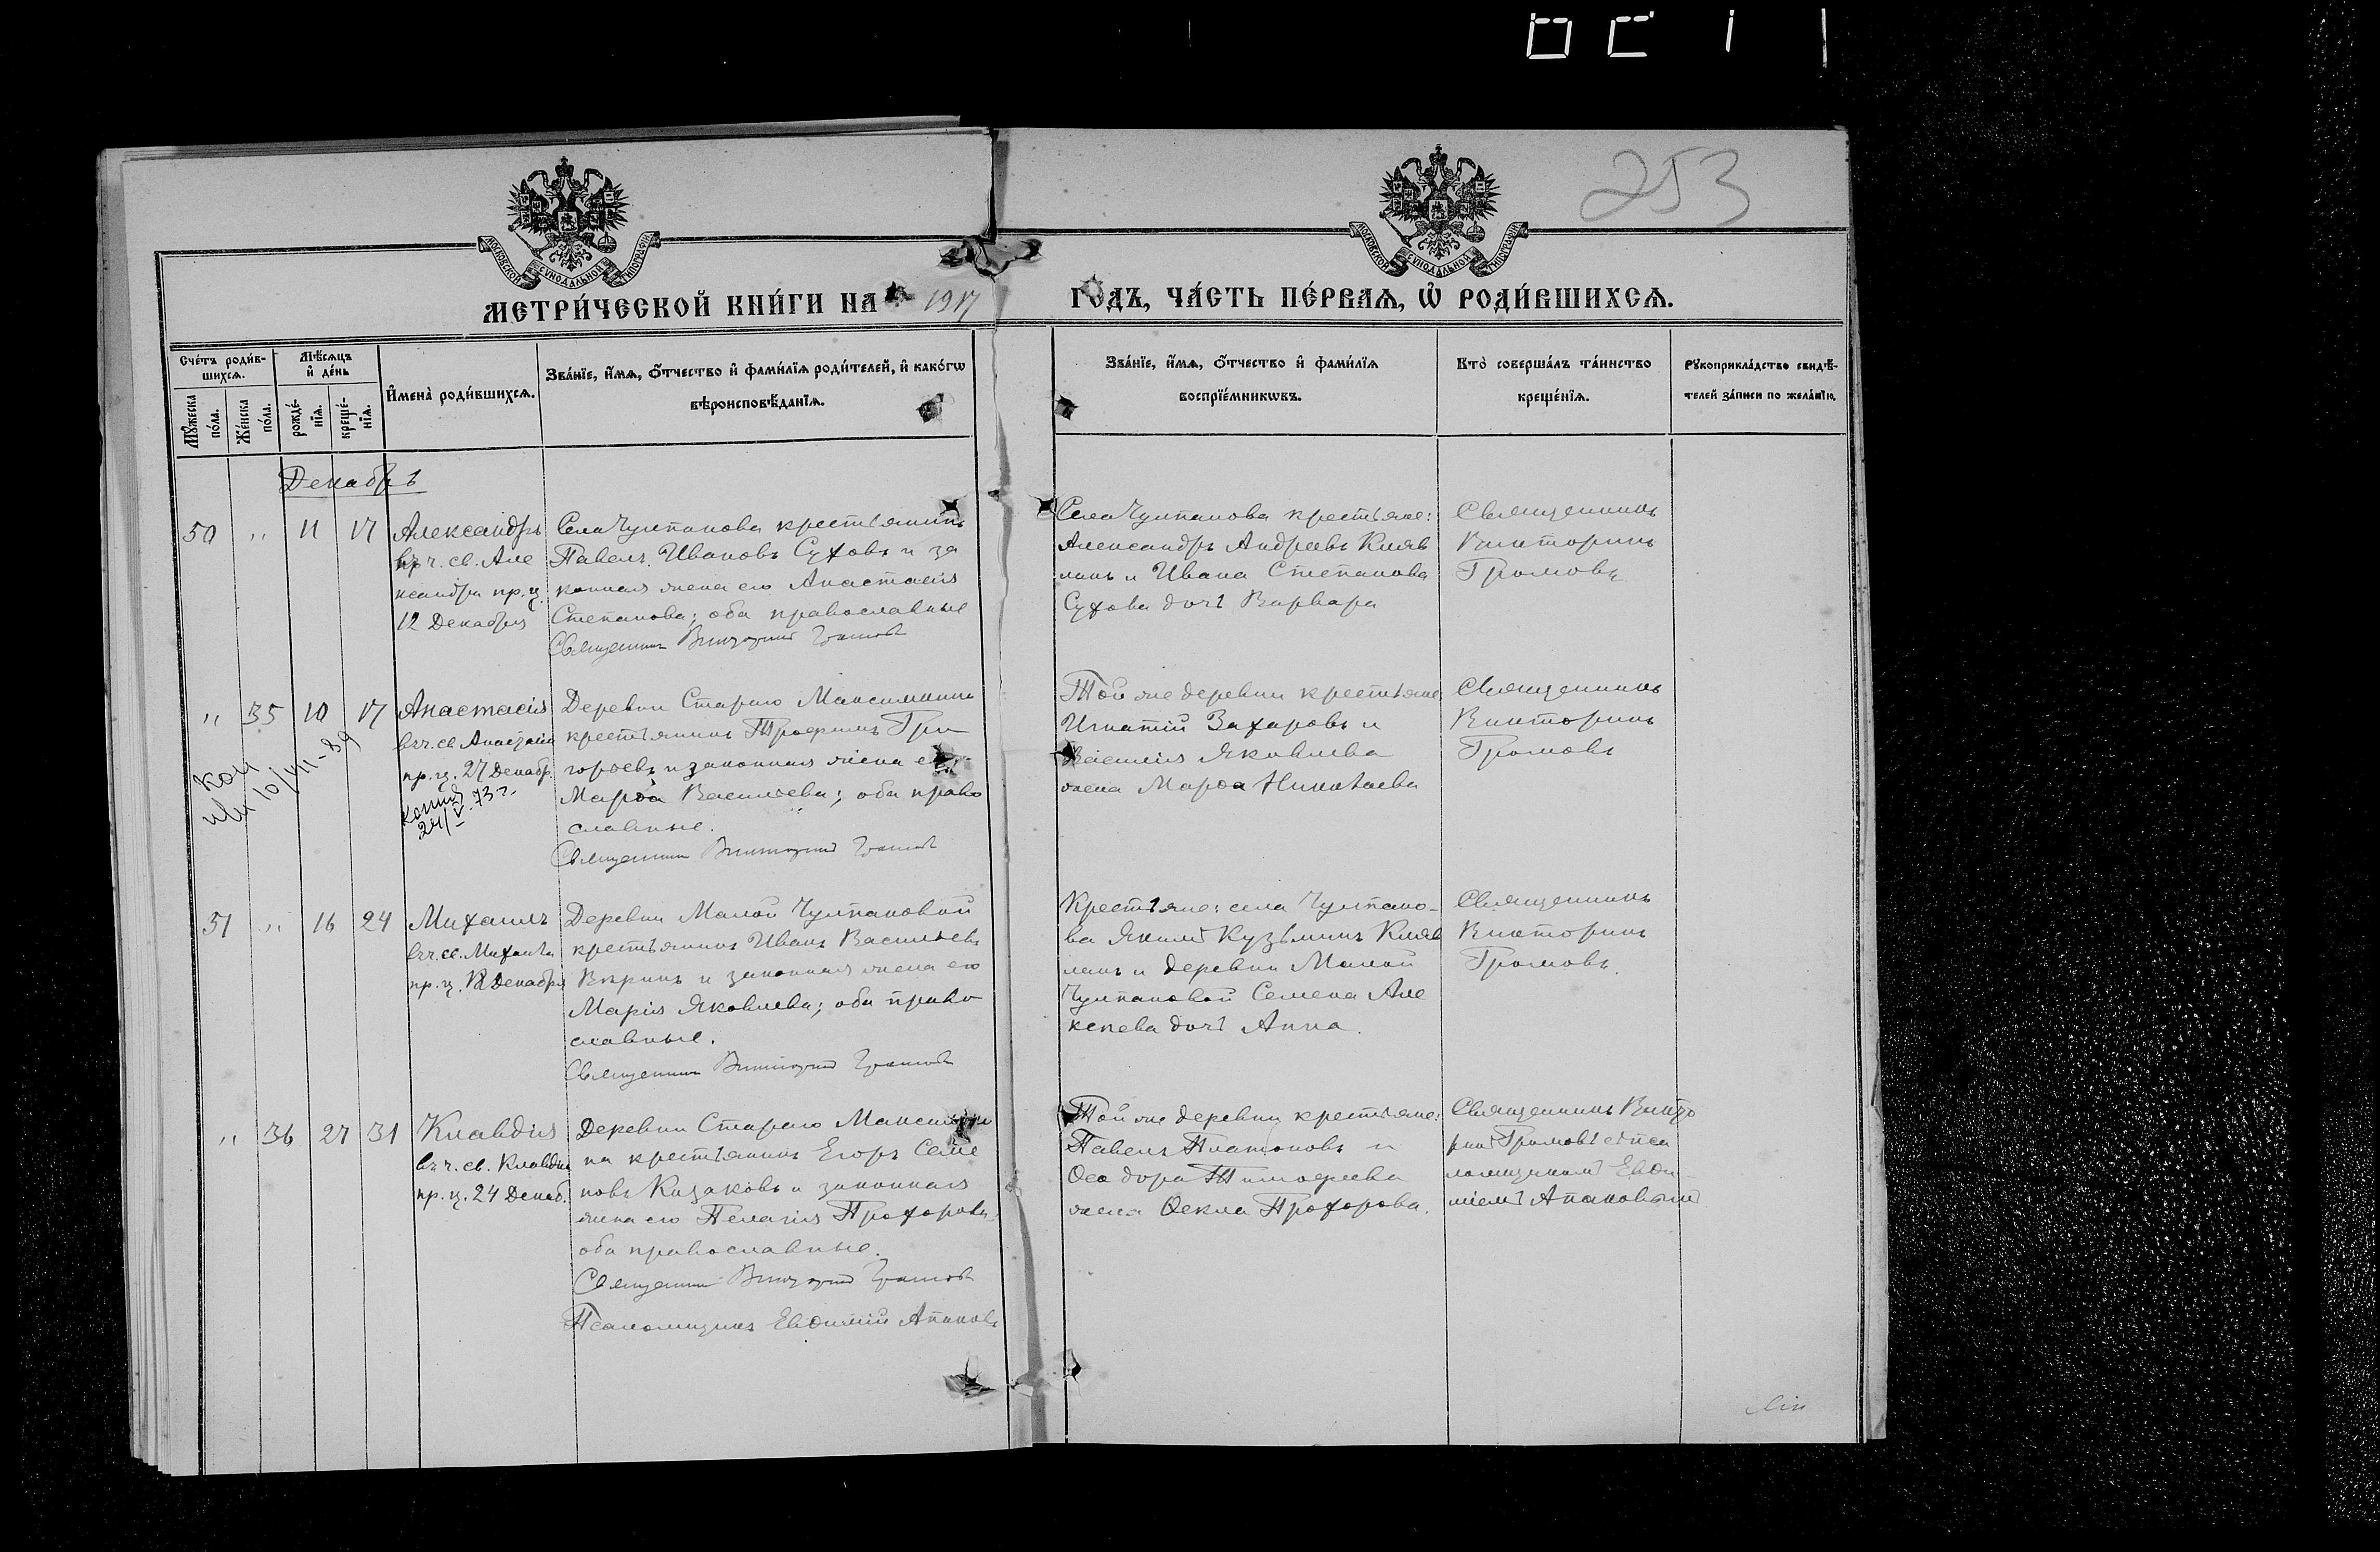 253
МОСКОВСКОЙ СѴНОДАЛЬНОЙ ТИПОГРАФІИ
МОСКОВСКОЙ СѴНОДАЛЬНОЙ ТИПОГРАФІИ
МЕТРИ́ЧЕСКОЙ КНИ́ГИ НА 1917 ГО́ДЪ, ЧА́СТЬ ПЕ́РВАЯ, Ѡ РОДИ́ВШИХСЯ.
Сче́тъ роди́в-
шихся.
Мѣ́сяцъ
и҆ де́нь
Мꙋ́жеска
по́ла.
Же́нска
по́ла.
рожде́-
нїя.
креще́-
нїя.
И҆мена̀ роди́вшихся.
Зва́нїе, и҆́мя, ѻ҆́тчество и҆ фами́лїя роди́телей, и҆ како́гѡ
вѣроисповѣ́данїя.
Зва́нїе, и҆́мя, ѻ҆́тчество и҆ фами́лїя
воспрїе́мникѡвъ.
Кто̀ соверша́лъ та́инство
креще́нїя.
Рꙋкоприкла́дство свидѣ́-
телей за́писи по жела́нїю.
Декабрь
50 " 11 17
Александръ
въ ч. св. Але
ксандра пр. ц.
12 Декабря
Села Чулпанова крестьянинъ
Павелъ Ивановъ Суховъ и за
конная жена его Анастасія
Степанова; оба православные
Священникъ Викторинъ Громовъ
Села Чулпанова крестьяне:
Александръ Андреевъ Княв
линъ и Ивана Степанова
Сухова дочь Варвара
Священникъ
Викторинъ
Громовъ
" 35 10 17
Анастасія
въ ч. св Анастасіи
пр. ц. 27 Декабр.
копия
24/V. 73 г.
10/VII-89
Деревни Стараго Максимкина
крестьянинъ Трофимъ Гри
горьевъ и законная жена его
Марѳа Васильева; оба право
славные.
Священникъ Викторинъ Громовъ
Той же деревни крестьяне
Игнатій Захаровъ и
Василія Яковлева
жена Марѳа Николаева
Священникъ
Викторинъ
Громовъ
51 " 16 24
Михаилъ
въ ч. св. Михаила
пр. ц. Декабря
Деревни Малой Чулпановой
крестьянинъ Иванъ Васильевъ
и законная жена его
Марія Яковлева; оба право
славные.
Священникъ Викторинъ Громовъ
Крестьяне: села Чулпано-
ва Якимъ Кузьминъ Княв
линъ и деревни Малой
Чулпановой Семена Але
ксеева дочь Анна.
Священникъ
Викторинъ
Громовъ.
" 36 27 31
Клавдія
въ ч. св. Клавдіи
пр. ц. 24 Декаб.
Деревни Стараго Максимки
на крестьянинъ Егоръ Семе
новъ Казаковъ и законная
жена его Пелагія Прохорова,
оба православные.
Священникъ Викторинъ Громовъ
Псаломщикъ Евѳимій Апаковъ
Той же деревни крестьяне:
Павелъ Платоновъ и
Ѳеодора Тимофеева
жена Ѳекла Прохорова.
Священникъ Викто
ринъ Громовъ съ пса
ломщикомъ Евѳи
міемъ Апаковымъ